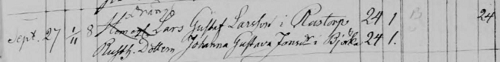 Sept. 27 1/11 8 Lars Gustaf Larsson i Rastorp 24 1. 24
Dottern Johanna Gustava Jonsdr i Björke 24 1.